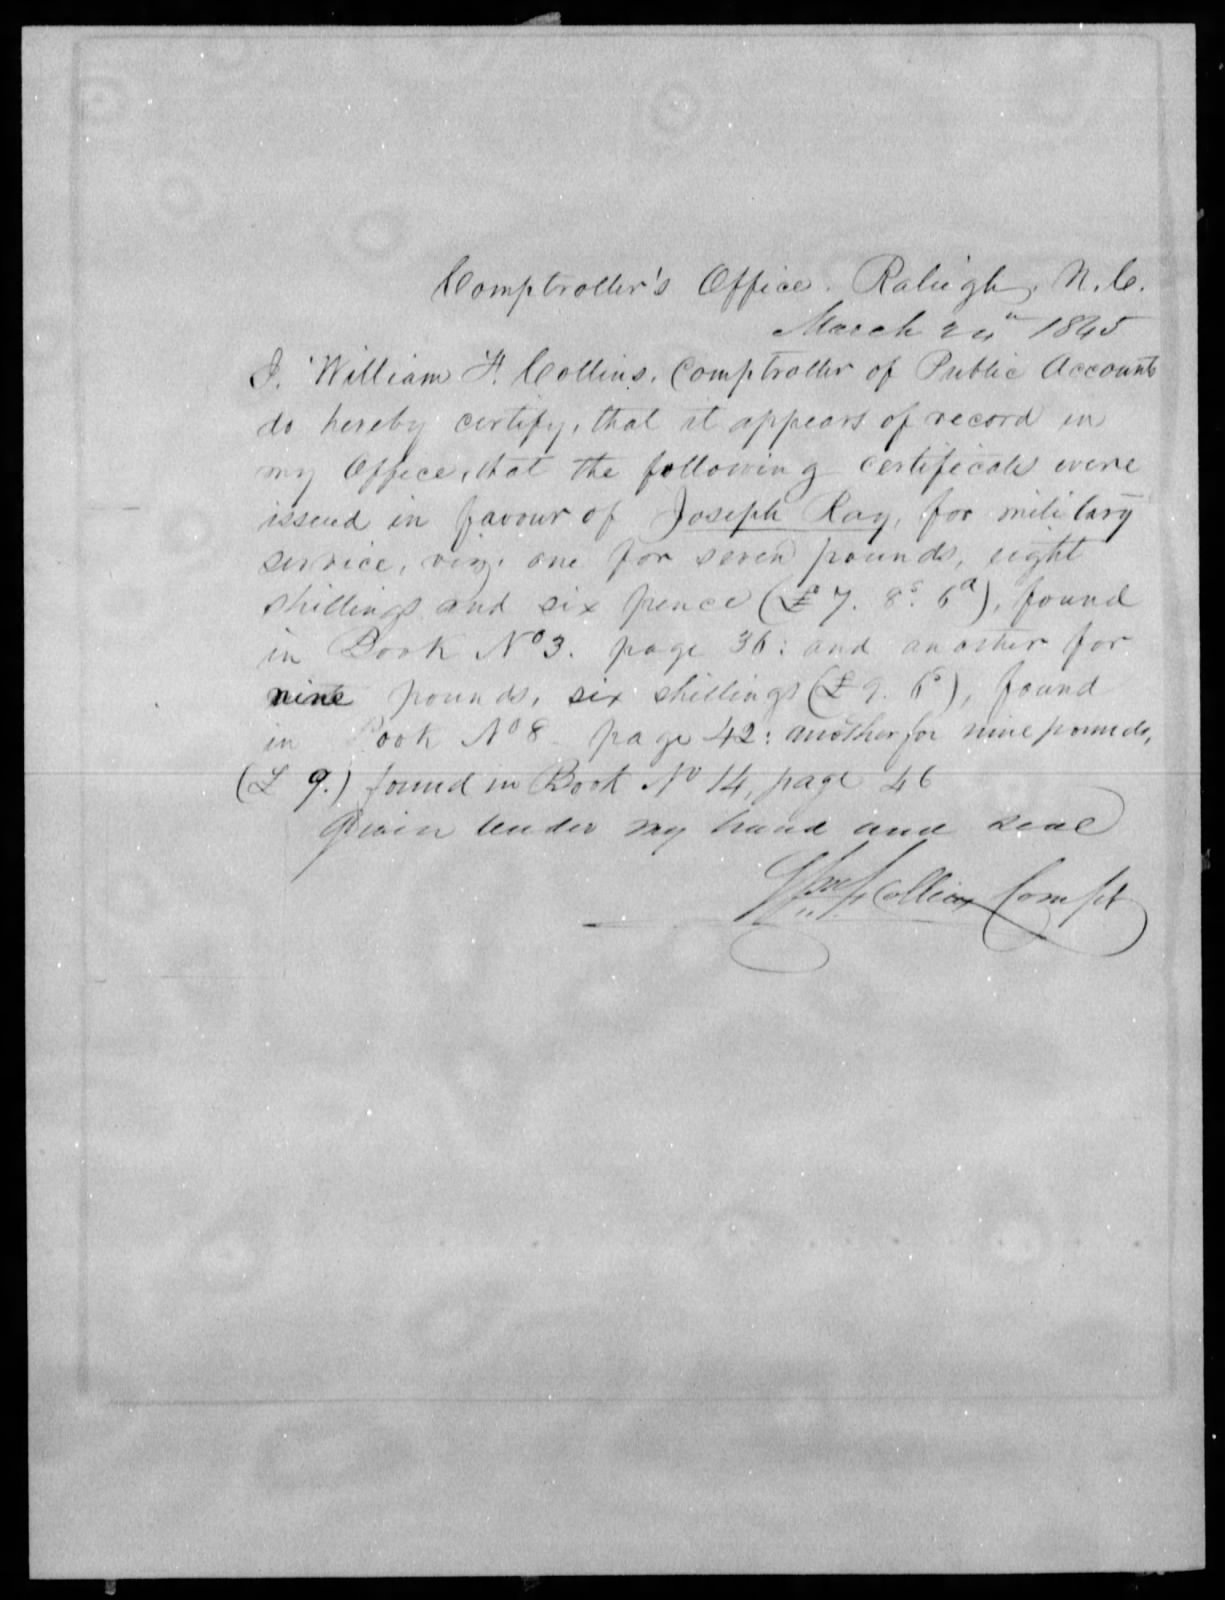 Comptroller's Office. Raleigh, N.C.
March 24" 1845
I. William F. Collins, Comptroller of Public Accounts
do hereby certify, that it appears of record in
my Office, that the following certificates were
issued in favour of Joseph Ray, for military
service, viz. one for seven pounds, eight
shillings and six pence (£ 7. 8s. 6d), found
in Book No 3. page 36: and another for
nine pounds, six shillings (£ 9. 6s), found
in Book No 8 page 42: another for nine pounds,
(£ 9.) found in Book No 14, page 46
Given under my hand and seal
Wm F. Collins Compt